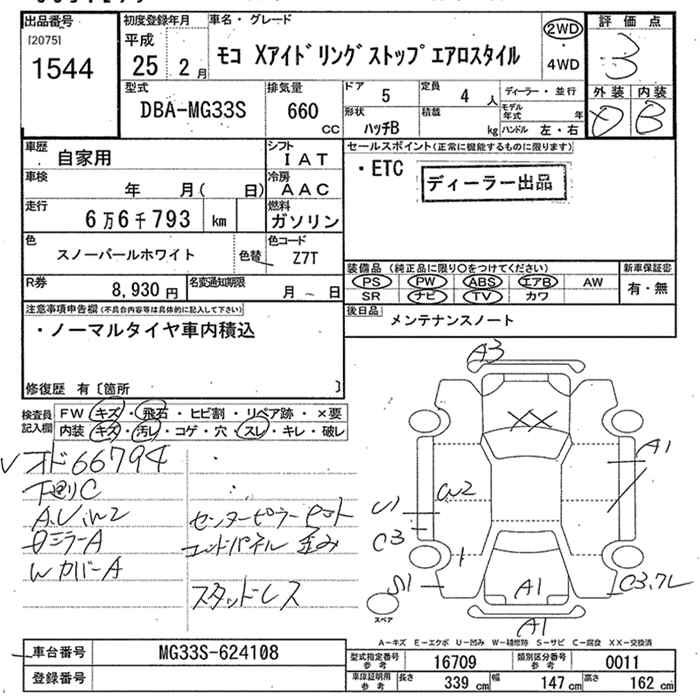 出品番号
[2075]
1544
初度登録年月
平成
25 2月
車名・グレード
モコ Xアイドリングストップエアロスタイル
2WD
・
4WD
評価点
3
外装 内装
D B
型式
DBA-MG33S
排気量
660
CC
ドア
5
定員
4 人
形状
ハッチB
積載
kg
ディーラー・並行
モデル年式 年
ハンドル 左・右
車歴
自家用
シフト
IAT
車検
年 月( 日)
冷房
AAC
走行
6万6千793 km
燃料
ガソリン
色
スノーパールホワイト
色替
色コード
Z7T
R券
8,930 円
名変通知期限
月 ~ 日
セールスポイント(正常に機能するものに限ります)
・ETC
ディーラー出品
装備品 (純正品に限り○をつけてください)
PS PW ABS エアB AW
SR ナビ TV カワ
新車保証書
有・無
後日品
メンテナンスノート
注意事項申告欄(不具合内容等は具体的に記入して下さい)
・ノーマルタイヤ車内積込
修復歴 有〔箇所 〕
検査員記入欄
FW キズ・飛石・ヒビ割・リペア跡・×要
内装 キズ・汚レ・コゲ・穴・スレ・キレ・破レ
オド66794
下廻りC
A.U.W2
ミラーA
Wカバー A
センターピラー
コンドパネル 歪み
スタッドレス
A3
XX
A1
U1
W2
C3
S1
A1
C3.7L
A1
スペア
A-キズ E-エクボ U-凹み W-補修跡 S-サビ C-腐食 XX-交換済
車台番号
MG33S-624108
登録番号
型式指定番号
参考
16709
類別区分番号
参考
0011
車庫証明用
参考
長さ
339 cm
幅
147 cm
高さ
162 cm